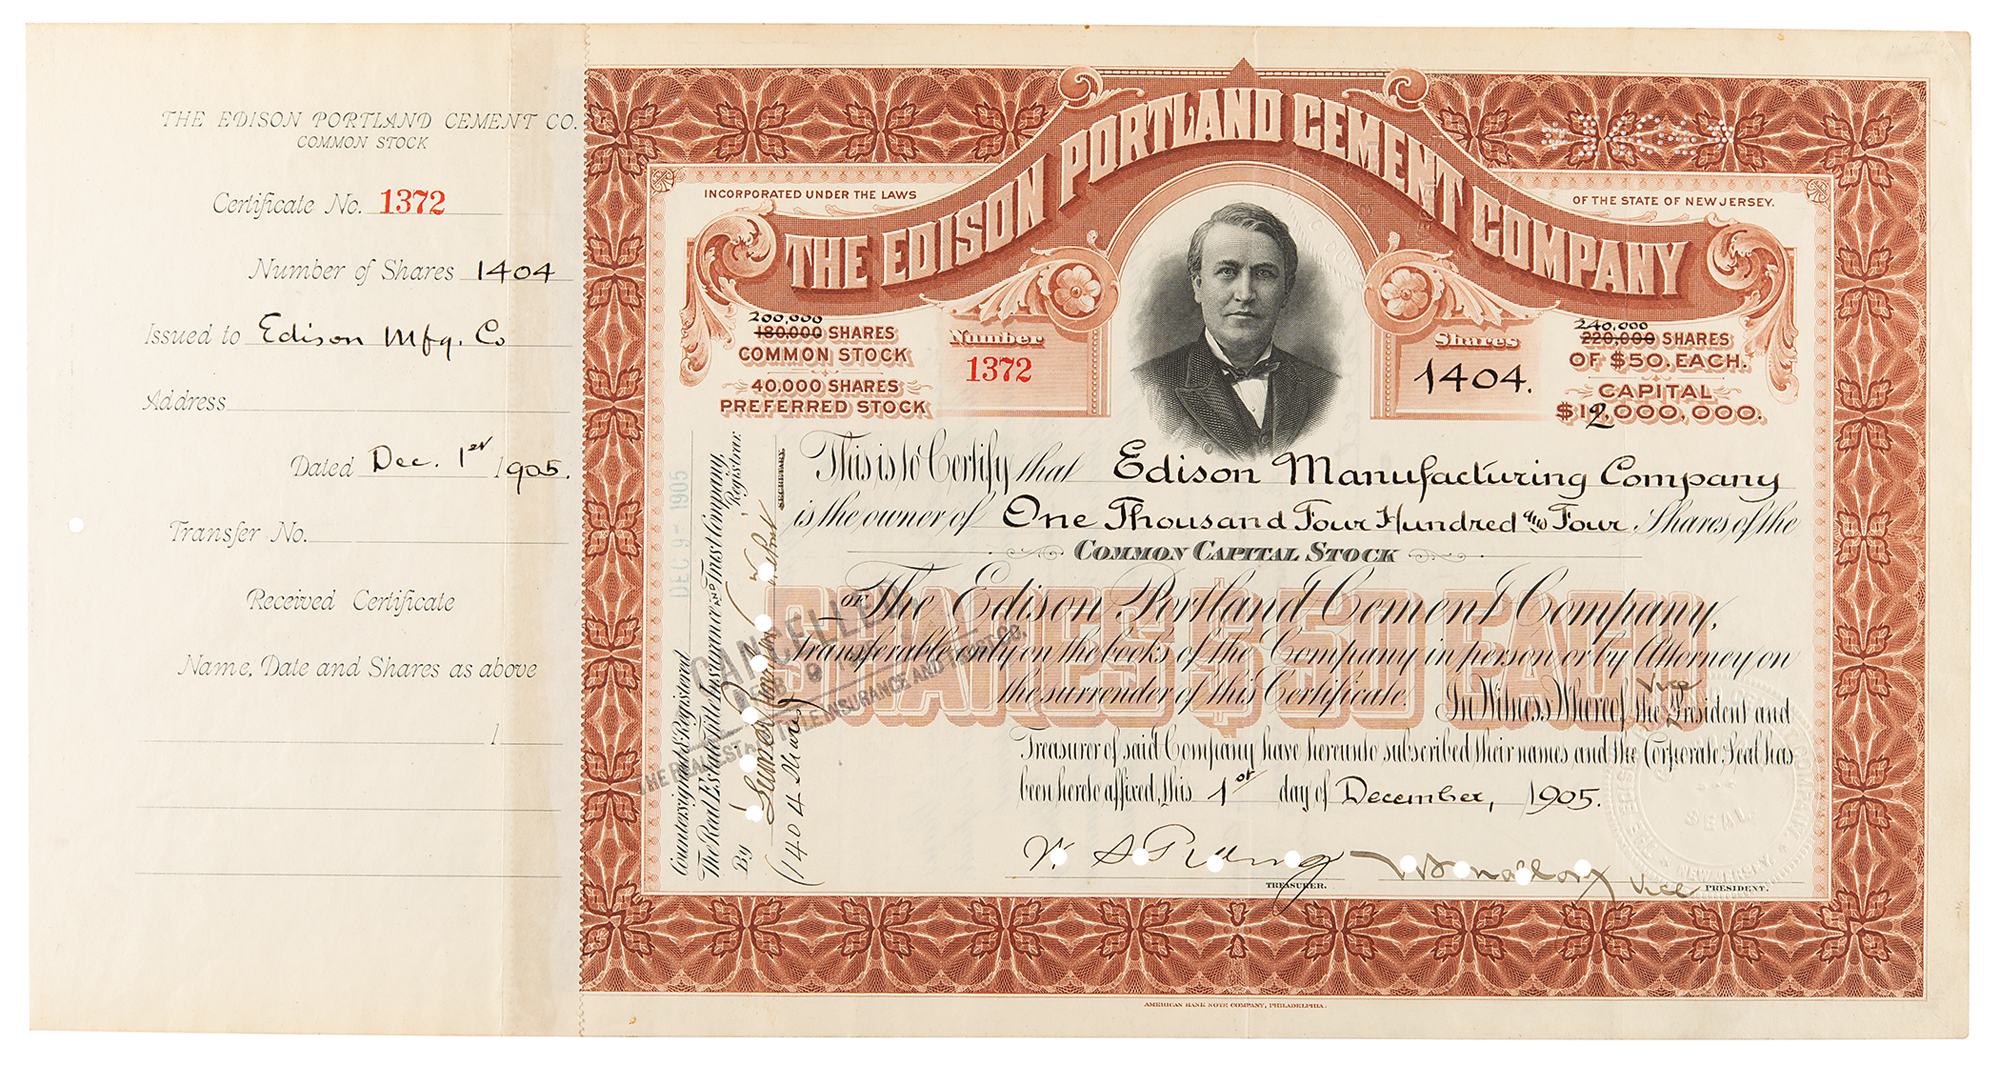 THE EDISON PORTLAND CEMENT CO.
COMMON STOCK
Certificate No. 1372
Number of Shares 1404
Issued to Edison Mfg. Co
Address
Dated Dec. 1st 1905.
Transfer No.
Received Certificate
Name, Date and Shares as above
1
INCORPORATED UNDER THE LAWS
OF THE STATE OF NEW JERSEY.
THE EDISON PORTLAND CEMENT COMPANY
200,000
180,000 SHARES
COMMON STOCK
40,000 SHARES
PREFERRED STOCK
Number
1372
Shares
1404.
240,000
220,000 SHARES
OF $50. EACH.
CAPITAL
$12,000,000.
This is to Certify that Edison Manufacturing Company
is the owner of One Thousand Four Hundred and Four Shares of the
COMMON CAPITAL STOCK
OF The Edison Portland Cement Company,
Transferable only on the books of the Company in person or by Attorney on
the surrender of this Certificate. In Witness Whereof the Vice President and
Treasurer of said Company have hereunto subscribed their names and the Corporate Seal has
been hereto affixed, this 1st day of December, 1905.
SHARES $50 EACH
TREASURER.
Vice PRESIDENT.
Countersigned and Registered
The Real Estate Title Insurance and Trust Company,
Registrar.
By
SECRETARY.
(1404 Shares)
DEC 9 - 1905
CANCELLED
FEB 9
THE REAL ESTATE TITLE INSURANCE AND TRUST CO.
SEAL
NEW JERSEY
AMERICAN BANK NOTE COMPANY, PHILADELPHIA.